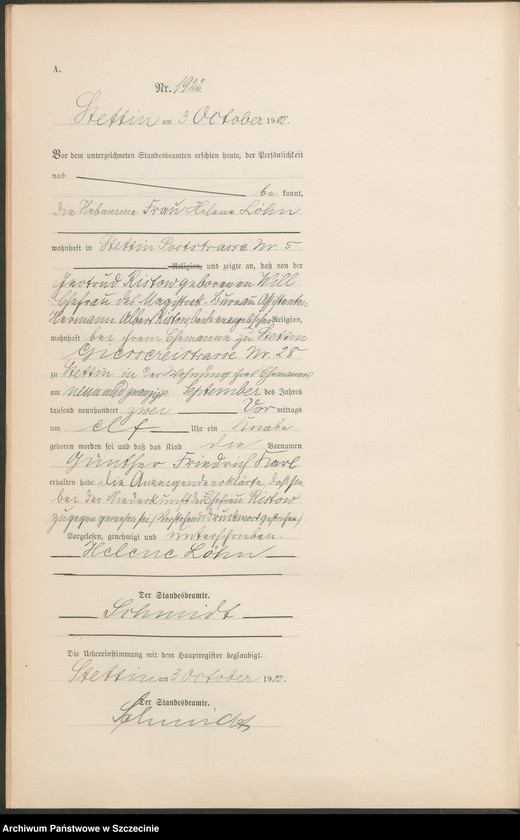 A.
Nr. 1922
Stettin am 3 October 1902.
Vor dem unterzeichneten Standesbeamten erschien heute, der Persönlichkeit
nach
be kannt,
die Hebamme Frau Helene Löhn
wohnhaft in Stettin Poststrasse Nr 5
Religion, und zeigte an, daß von der
Gertrud Ristow geborenen Will
Ehefrau des Magistrat-Bureau Assistenten
Hermann Albert Ristow, beide evangelischer Religion,
wohnhaft bei ihrem Ehemanne zu Stettin
Giesebrechtstrasse Nr. 28
zu Stettin in der Wohnung ihres Ehemannes
am neun und zwanzigsten September des Jahres
tausend neunhundert zwei Vor mittags
um elf Uhr ein Knabe
geboren worden sei und daß das Kind die Vornamen
Günther Friedrich Karl
erhalten habe. die Anzeigende erklärte, daß sie
bei der Niederkunft der Ehefrau Ristow
zugegen gewesen sei. (Vorstehend 1 Druckwort gestrichen)
Vorgelesen, genehmigt und unterschrieben.
Helene Löhn
Der Standesbeamte.
Schmidt
Die Uebereinstimmung mit dem Hauptregister beglaubigt.
Stettin am 3 October 1902.
Der Standesbeamte.
Schmidt
Archiwum Państwowe w Szczecinie